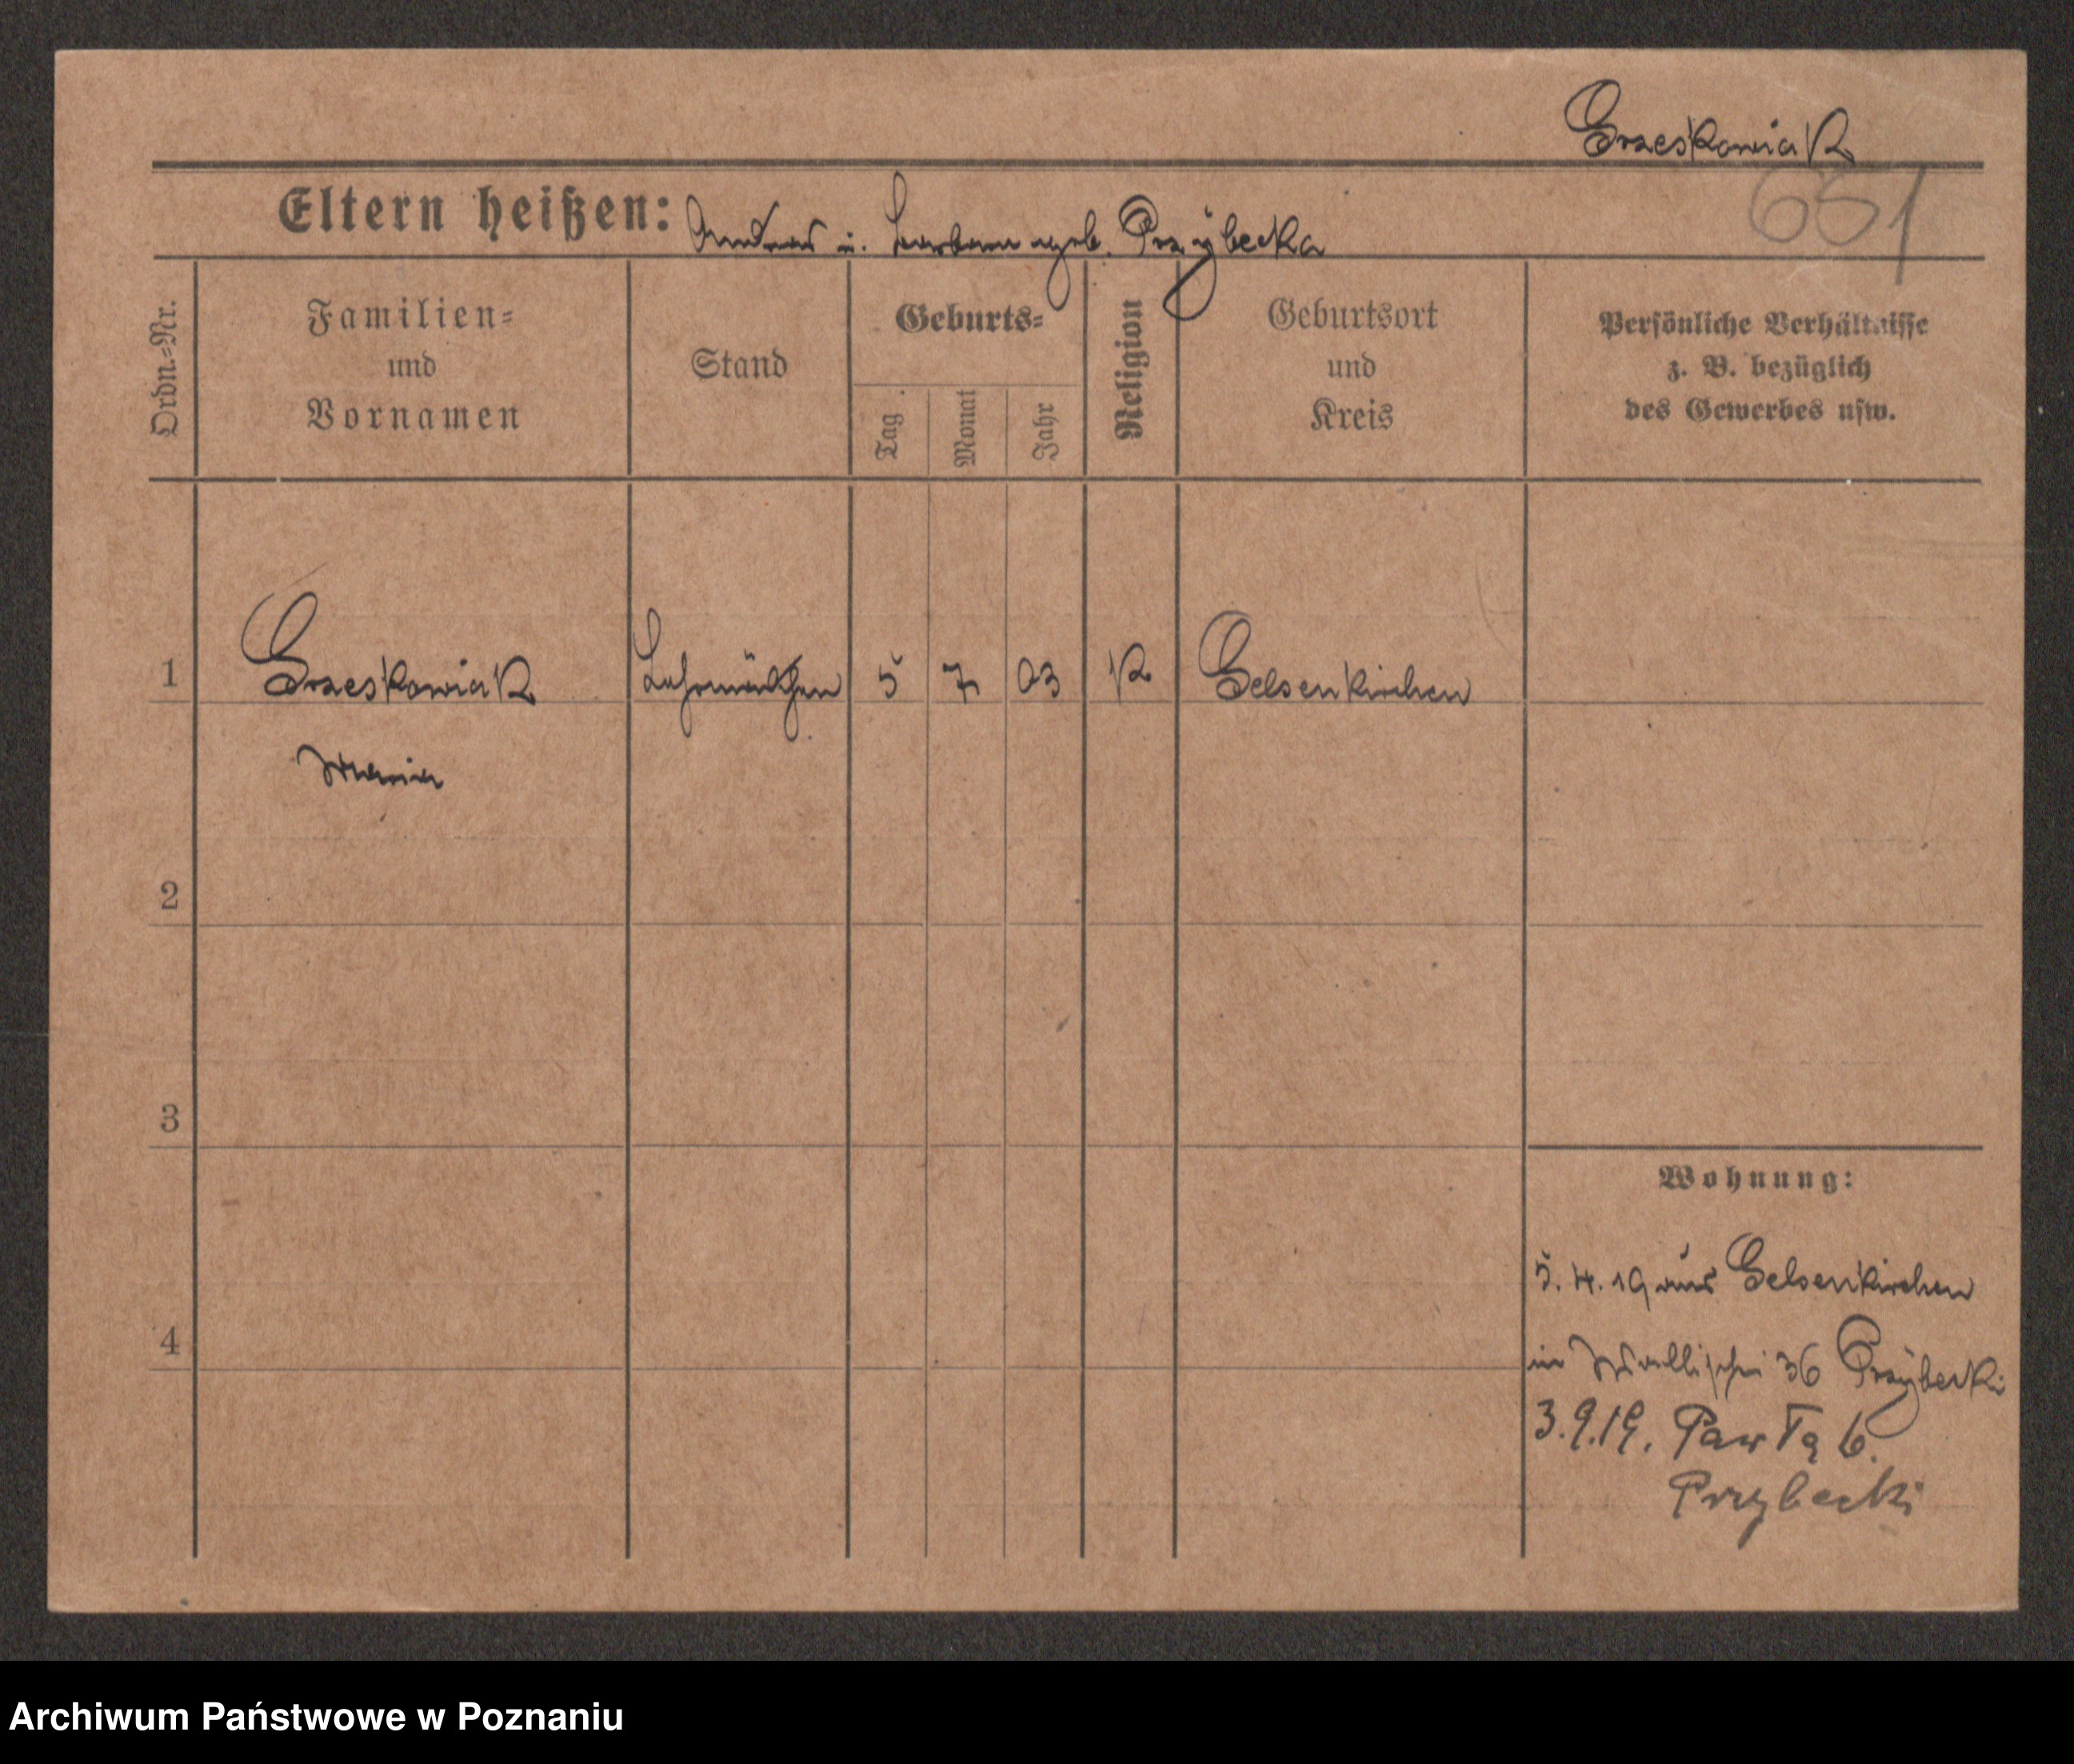 Grzeskowiak
651
Eltern heißen: Andreas u. Barbara geb. Przÿbecka
Ordn.=Nr.
Familien=
und
Vornamen
Stand
Geburts=
Tag
Monat
Jahr
Religion
Geburtsort
und
Kreis
Persönliche Verhältnisse
z. B. bezüglich
des Gewerbes usw.
1 Grzeskowiak Lehrmädchen 5 7 03 K Gelsenkirchen
Maria
2
3
Wohnung:
5. 4. 19 aus Gelsenkirchen
4
in Wallischei 36 Przÿbecki
3.9.19. 6.
Przybecki
Archiwum Państwowe w Poznaniu